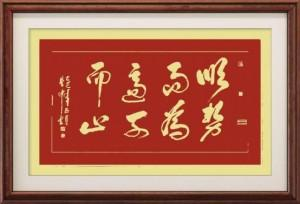 顺势
而为
适可
而止